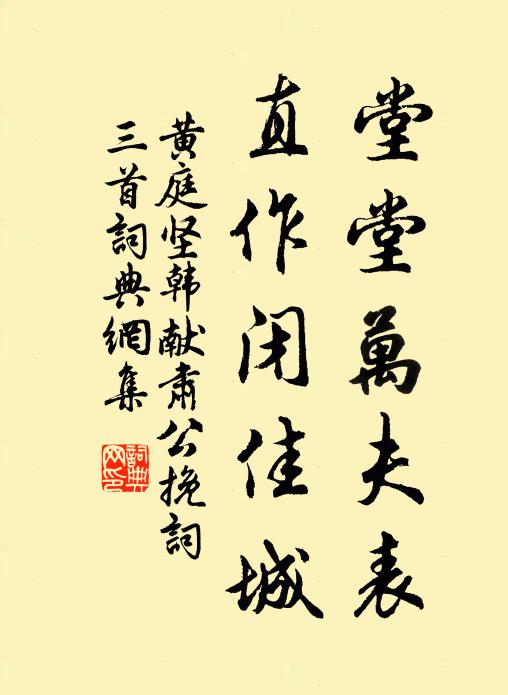 堂堂萬夫表
直作闭佳城
黄庭坚韩献肃公挽詞
三首詞典網集
詞典
网印